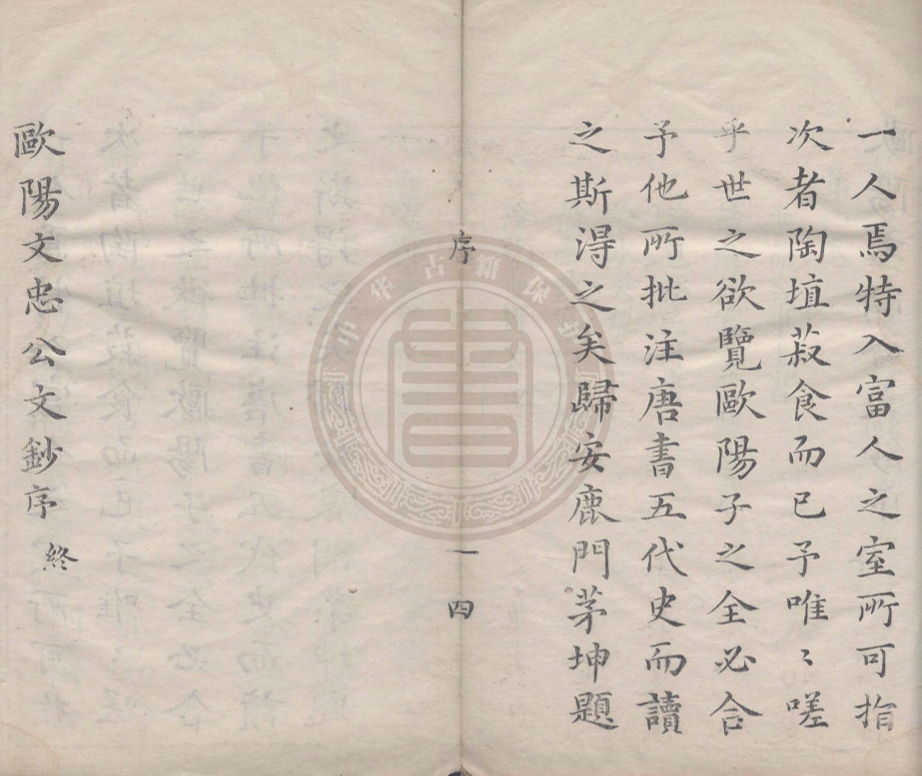 一人焉特入富人之室所可指
次者陶埴菽食而已予唯〻嗟
乎世之欲覽歐陽子之全必合
予他所批注唐書五代史而讀
之斯得之矣歸安鹿門茅坤題
序 一 四
歐陽文忠公文鈔序 終
中华古籍保